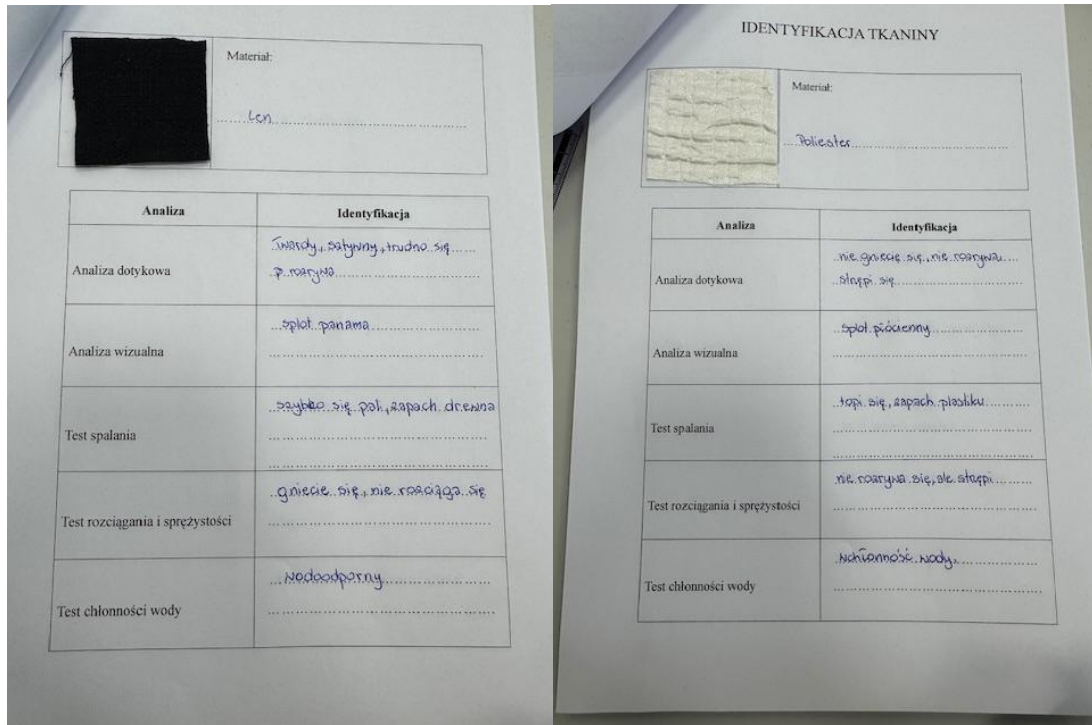 Materiał:
Len
Analiza
Identyfikacja
Analiza dotykowa
Twardy, sztywny, trudno się
rozrywa
Analiza wizualna
splot panama
Test spalania
szybko się pali, zapach drewna
Test rozciągania i sprężystości
gniecie się, nie rozciąga się
Test chłonności wody
wodoodporny
IDENTYFIKACJA TKANINY
Materiał:
Poliester
Analiza
Identyfikacja
Analiza dotykowa
nie gniecie się, nie rozrywa
strzępi się
Analiza wizualna
splot płócienny
Test spalania
topi się, zapach plastiku
Test rozciągania i sprężystości
nie rozrywa się, ale strzępi
Test chłonności wody
wchłonność wody.